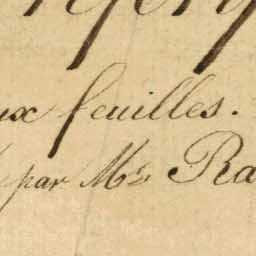 ux feuilles.
par Mr Ra